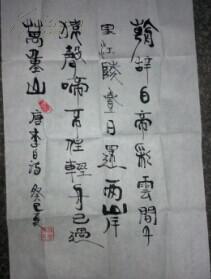 朝辞白帝彩雲間千
里江陵壹日還两岸
猿聲啼不住輕舟已過
萬重山 唐李白詩 癸巳